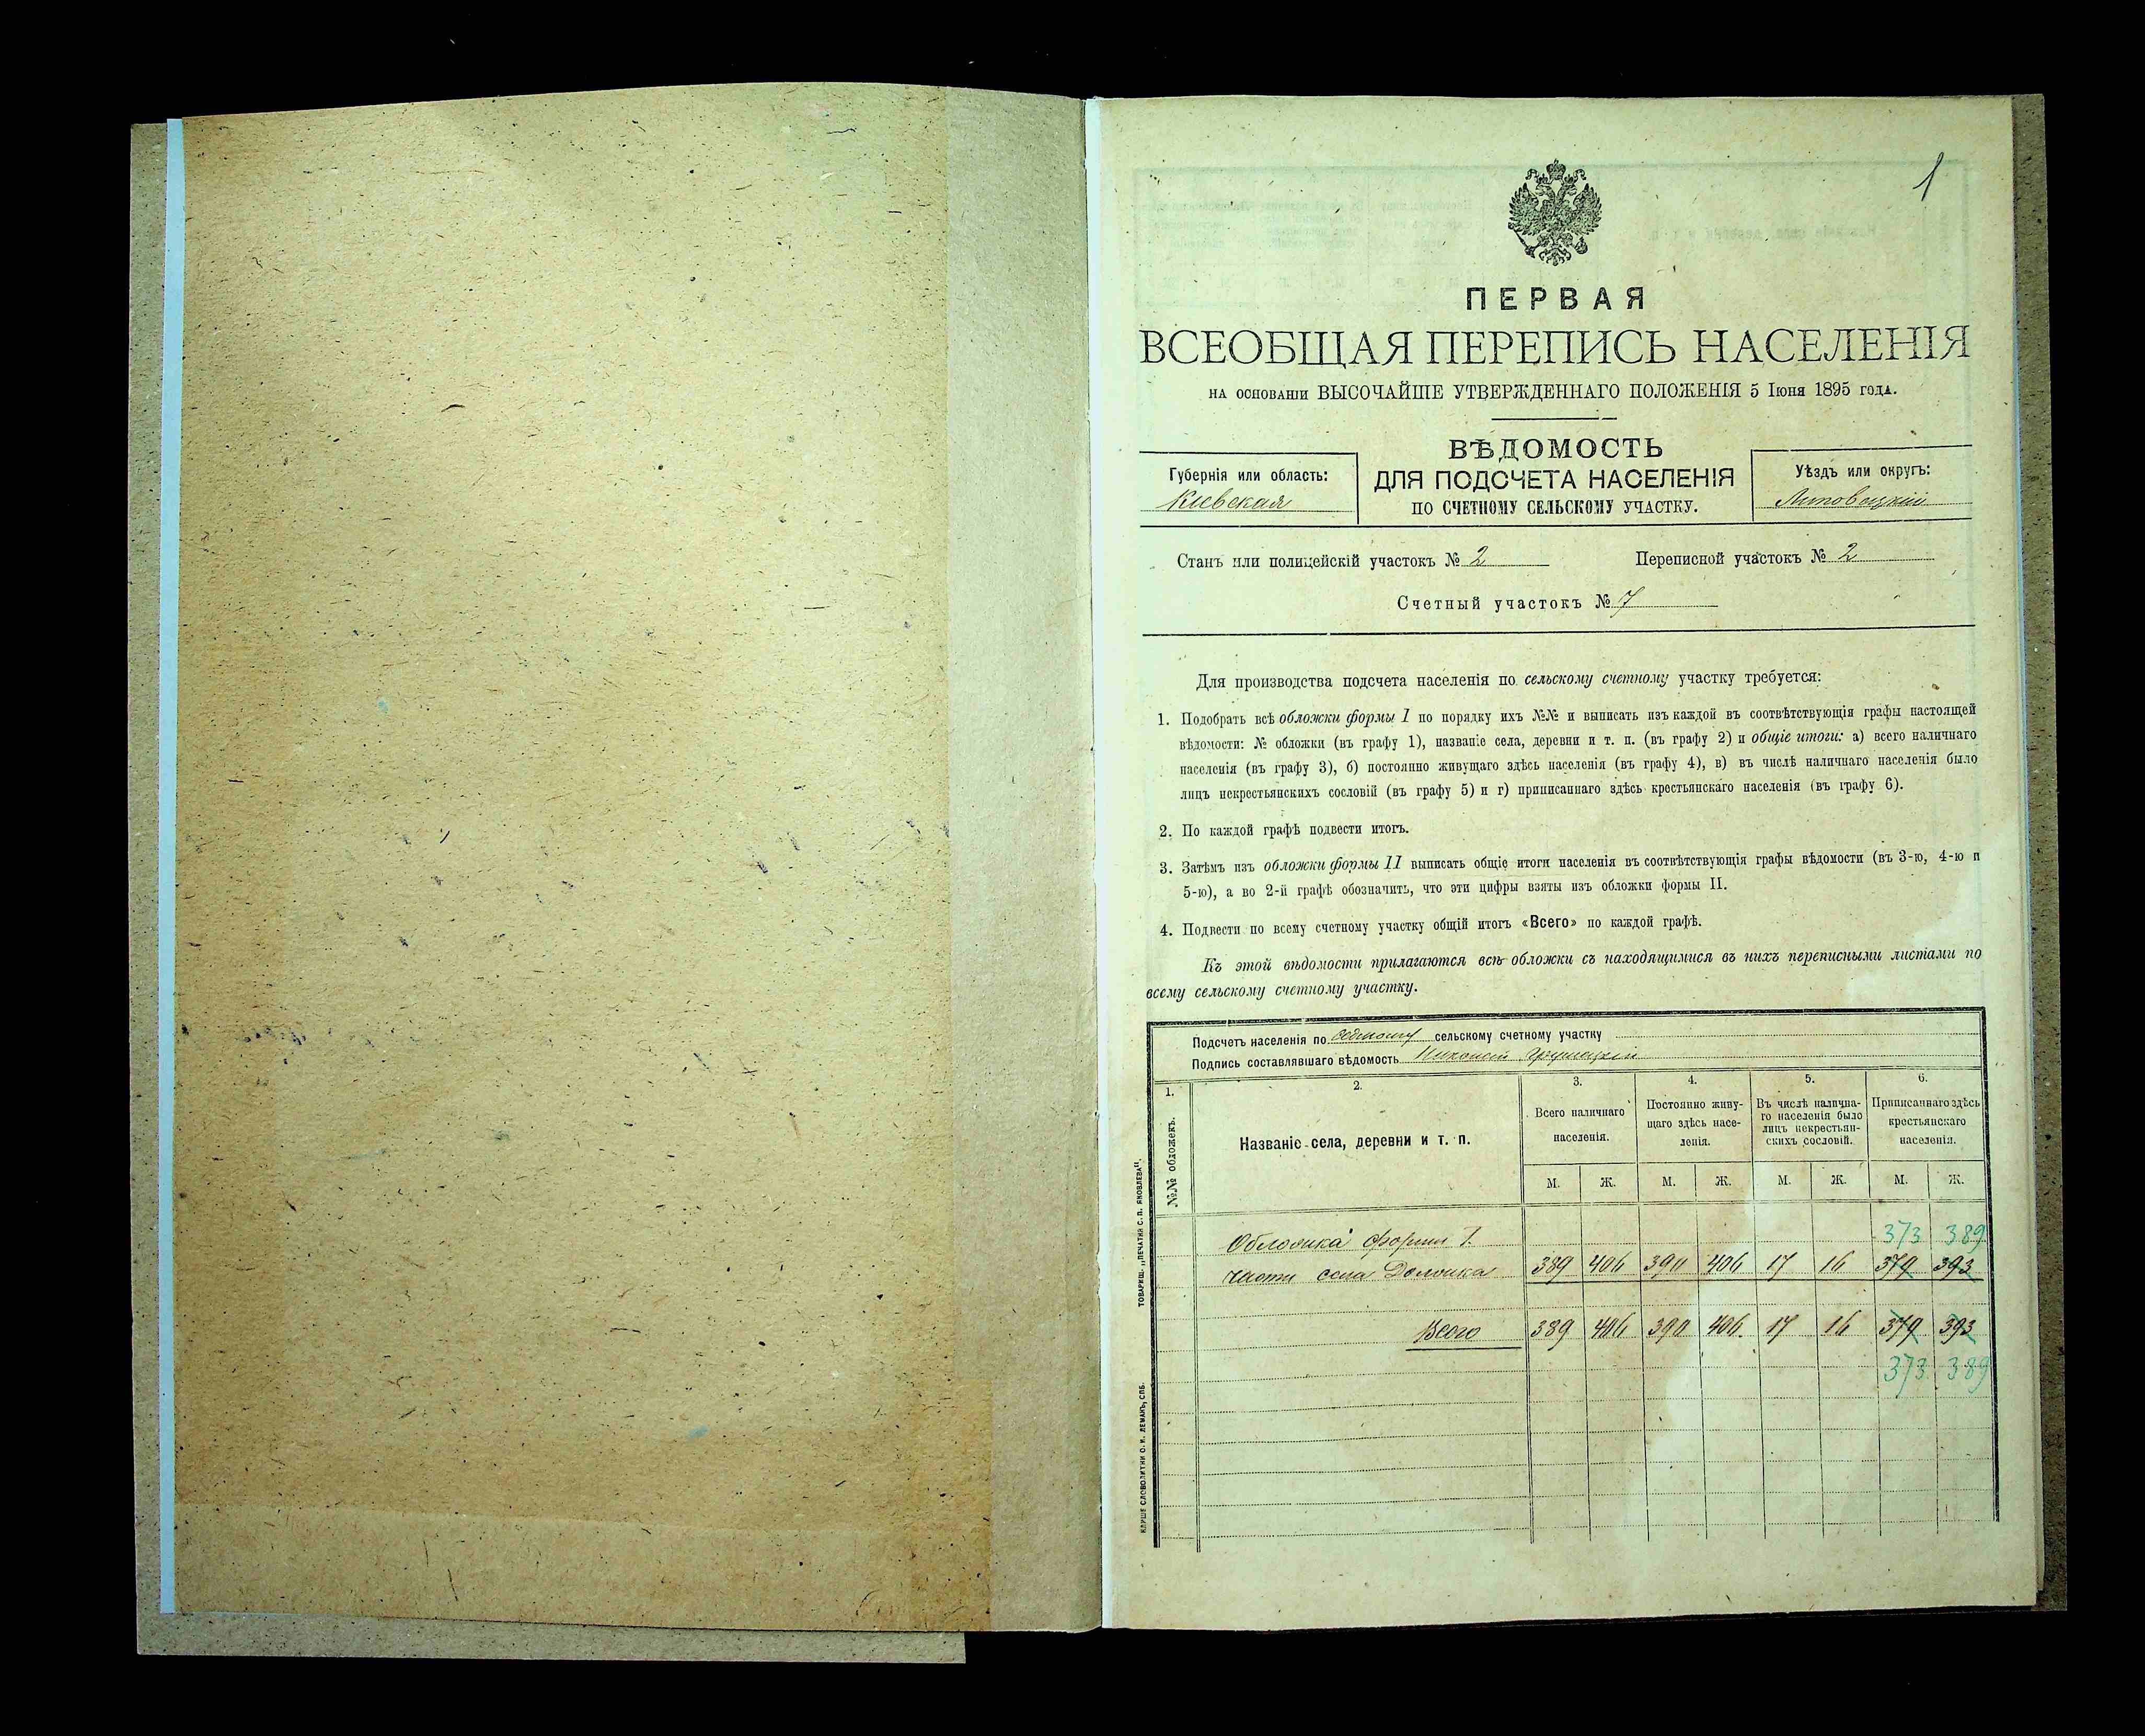 1
ПЕРВАЯ
ВСЕОБЩАЯ ПЕРЕПИСЬ НАСЕЛЕНІЯ
НА ОСНОВАНІИ ВЫСОЧАЙШЕ УТВЕРЖДЕННАГО ПОЛОЖЕНІЯ 5 Іюня 1895 ГОДА.
ВѢДОМОСТЬ
ДЛЯ ПОДСЧЕТА НАСЕЛЕНІЯ
ПО СЧЕТНОМУ СЕЛЬСКОМУ УЧАСТКУ.
Губернія или область:
Кіевская
Уѣздъ или округъ:
Липовецкій
Станъ или полицейскій участокъ № 2
Переписной участокъ № 2
Счетный участокъ № 7
Для производства подсчета населенія по сельскому счетному участку требуется:
1. Подобрать всѣ обложки формы I по порядку ихъ №№ и выписать изъ каждой въ соотвѣтствующія графы настоящей
вѣдомости: № обложки (въ графу 1), названіе села, деревни и т. п. (въ графу 2) и общіе итоги: а) всего наличнаго
населенія (въ графу 3), б) постоянно живущаго здѣсь населенія (въ графу 4), в) въ числѣ наличнаго населенія было
лицъ некрестьянскихъ сословій (въ графу 5) и г) приписаннаго здѣсь крестьянскаго населенія (въ графу 6).
2. По каждой графѣ подвести итогъ.
3. Затѣмъ изъ обложки формы II выписать общіе итоги населенія въ соотвѣтствующія графы вѣдомости (въ 3-ю, 4-ю и
5-ю), а во 2-й графѣ обозначить, что эти цифры взяты изъ обложки формы II.
4. Подвести по всему счетному участку общій итогъ «Всего» по каждой графѣ.
Къ этой вѣдомости прилагаются всѣ обложки съ находящимися въ нихъ переписными листами по
всему сельскому счетному участку.
Подсчетъ населенія по седьмому сельскому счетному участку
Подпись составлявшаго вѣдомость
1. 2. 3. 4. 5. 6.
№№ обложекъ.
Названіе села, деревни и т. п.
Всего наличнаго населенія.
Постоянно живущаго здѣсь населенія.
Въ числѣ наличнаго населенія было лицъ некрестьянскихъ сословій.
Приписаннаго здѣсь крестьянскаго населенія.
М. Ж. М. Ж. М. Ж. М. Ж.
Обложка формы I. 373 389
части села 389 406 390 406 17 16 379 393
Всего 389 406 390 406 17 16 379 393
373 389
ТОВАРИЩ. „ПЕЧАТНЯ С. П. ЯКОВЛЕВА".
КЛИШЕ СЛОВОЛИТНИ О. И. ЛЕМАНЪ, СПБ.